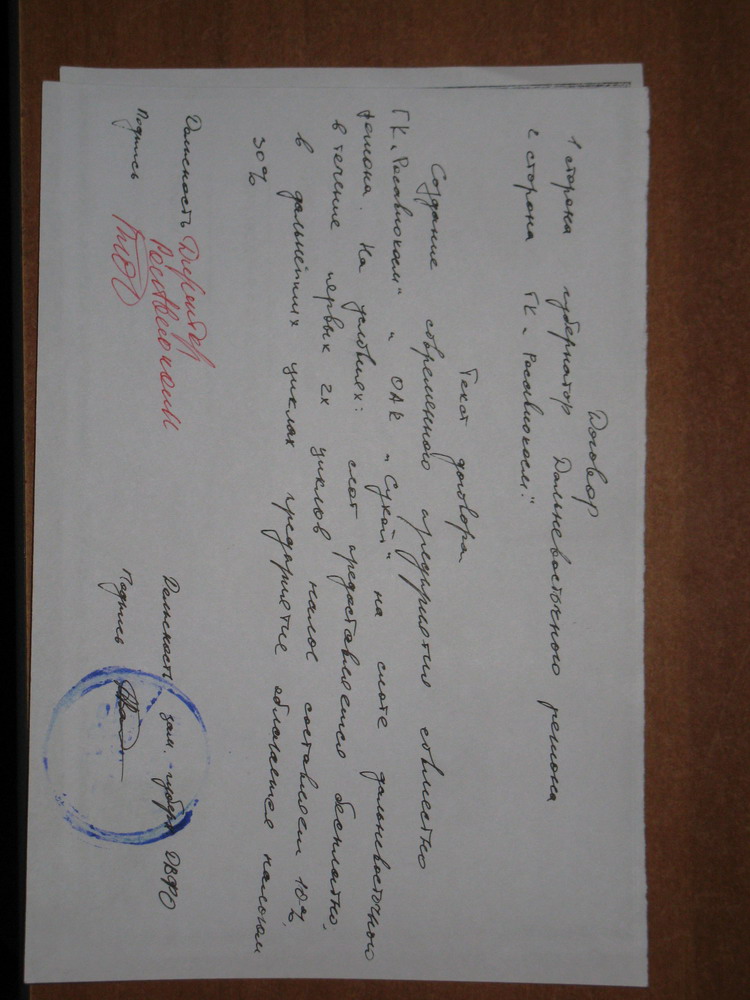 Договор
1 сторона губернатор Дальневосточного региона
2 сторона ГК „Росавиокосм"
Текст договора
Создание современного предприятия совместно
ГК „Росавиокосм" и ОАК „Сухой" на слоте дальневосточного
региона. На условиях: слот предоставляется бесплатно.
в течение первых 2х циклов налог составляет 10%.
в дальнейших циклах предприятие облагается налогом
30%
Должность Директор Росавиокосм
Подпись
Должность зам. губерн ДВФО
Подпись